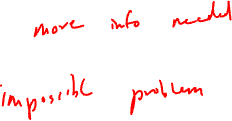 more info needed
impossible problem